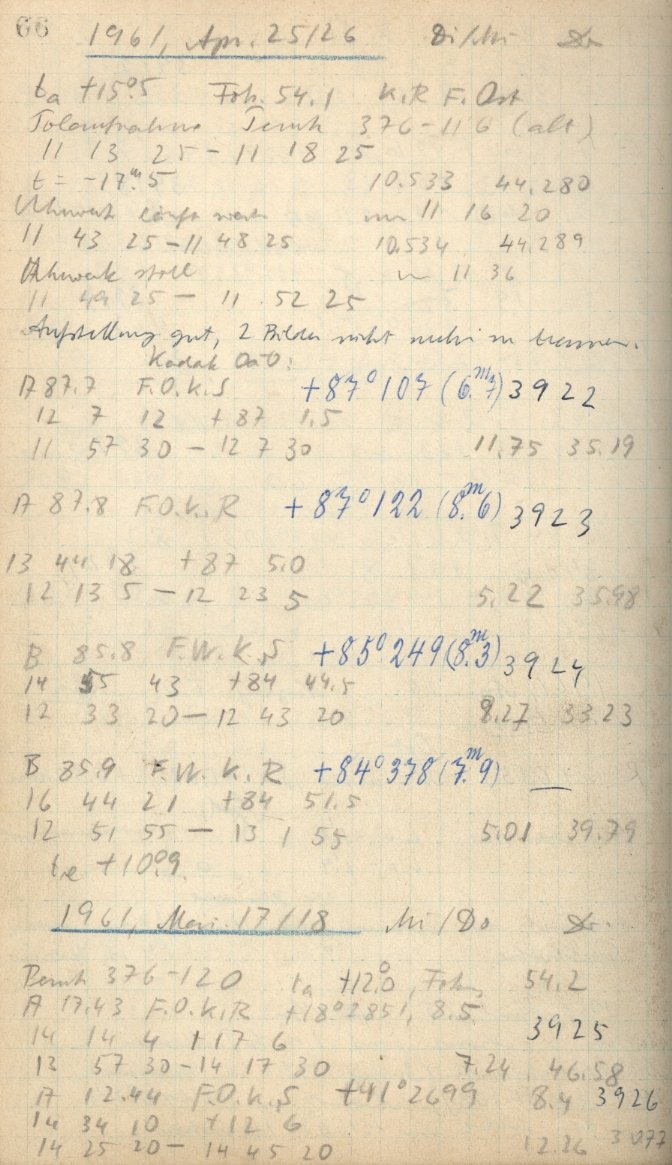 66
1961, Apr. 25/26 Di/Mi Dr
ta +15°.5 Fok. 54.1 K.R F. Ost
Polaufnahme Perutz 376-116 (alt)
11 13 25 – 11 18 25
t = -17m.5 10.533 44.280
Uhrwerk läuft um 11 16 20
11 43 25 – 11 48 25 10.534 44.289
Uhrwerk still 11 36
11 49 25 – 11 52 25
Aufstellung gut, 2 Bilder nicht mehr zu trennen.
Kodak OaO:
A 87.7 F.O.K.S +87°107 (6m.7) 3922
12 7 12 +87 1.5
11 57 30 – 12 7 30 11.75 35.19
A 87.8 F.O.K.R +87°122 (8m.6) 3923
13 44 18 +87 5.0
12 13 5 – 12 23 5 5.22 35.98
B 85.8 F.W.K.S +85°249 (8m.3) 3924
14 55 43 +84 44.5
12 33 20 – 12 43 20 8.27 33.23
B 85.9 F.W.K.R +84°378 (7m.9) —
16 44 21 +84 51.5
12 51 55 – 13 1 55 5.01 39.79
te +10°.9
1961, Mai 17/18 Mi/Do Dr.
Perutz 376-120 ta +12°.0, Fok. 54.2
A 17.43 F.O.K.R +18°2851, 8.5
14 14 4 +17 6 3925
13 57 30 – 14 17 30 7.24 46.58
A 12.44 F.O.K.S +41°2699 8.4 3926
14 34 10 +12 6
14 25 20 – 14 45 20 12.26